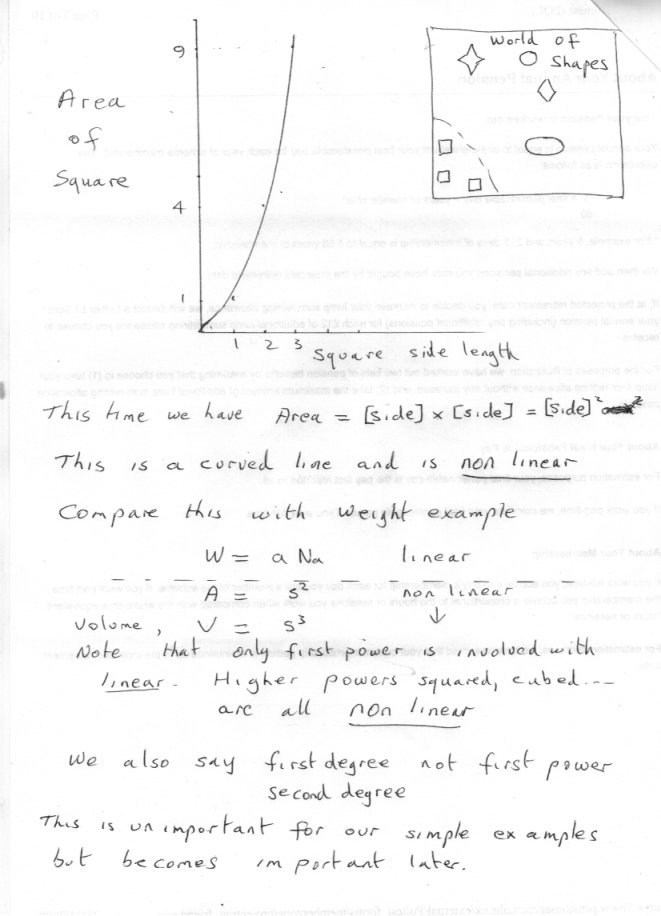 9
World of
Shapes
Area
of
Square
4
1
1 2 3
Square side length
This time we have Area = [side] x [side] = [side]²
This is a curved line and is non linear
Compare this with weight example
W = a Na linear
A = s² non linear
Volume, V = s³ ↓
Note that only first power is involved with
linear. Higher powers squared, cubed...
are all non linear
We also say first degree not first power
second degree
This is unimportant for our simple examples
but becomes important later.